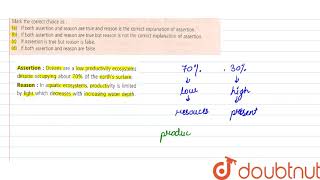 Mark the correct choice as :
(a) If both assertion and reason are true and reason is the correct explanation of assertion.
(b) If both assertion and reason are true but reason is not the correct explanation of assertion.
(c) If assertion is true but reason is false.
(d) If both assertion and reason are false.
Assertion : Oceans are a low productivity ecosystems
despite occupying about 70% of the earth's surface.
Reason : In aquatic ecosystems, productivity is limited
by light which decreases with increasing water depth.
70%. 30%.
low high
resources present
produc
doubtnut